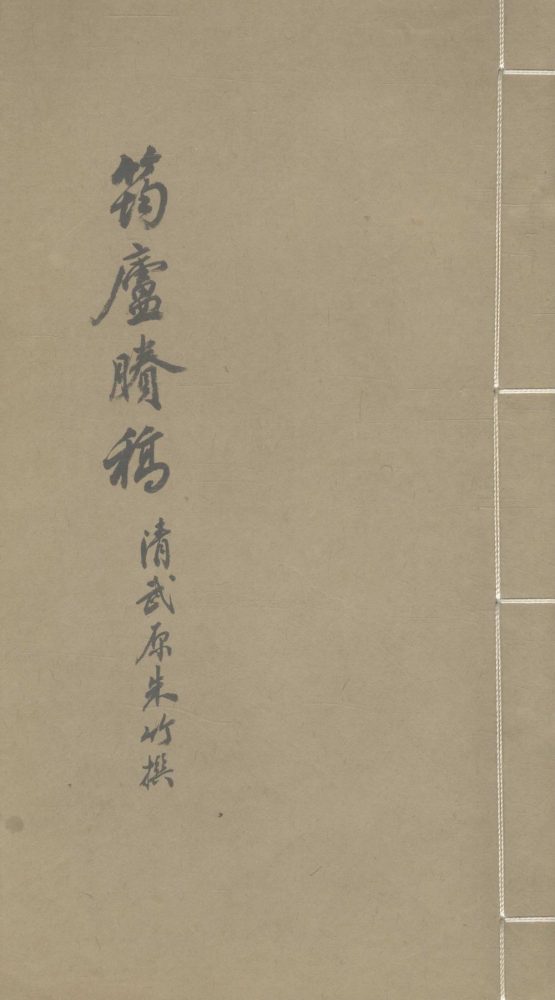 筠廬賸稿
清武原朱竹撰